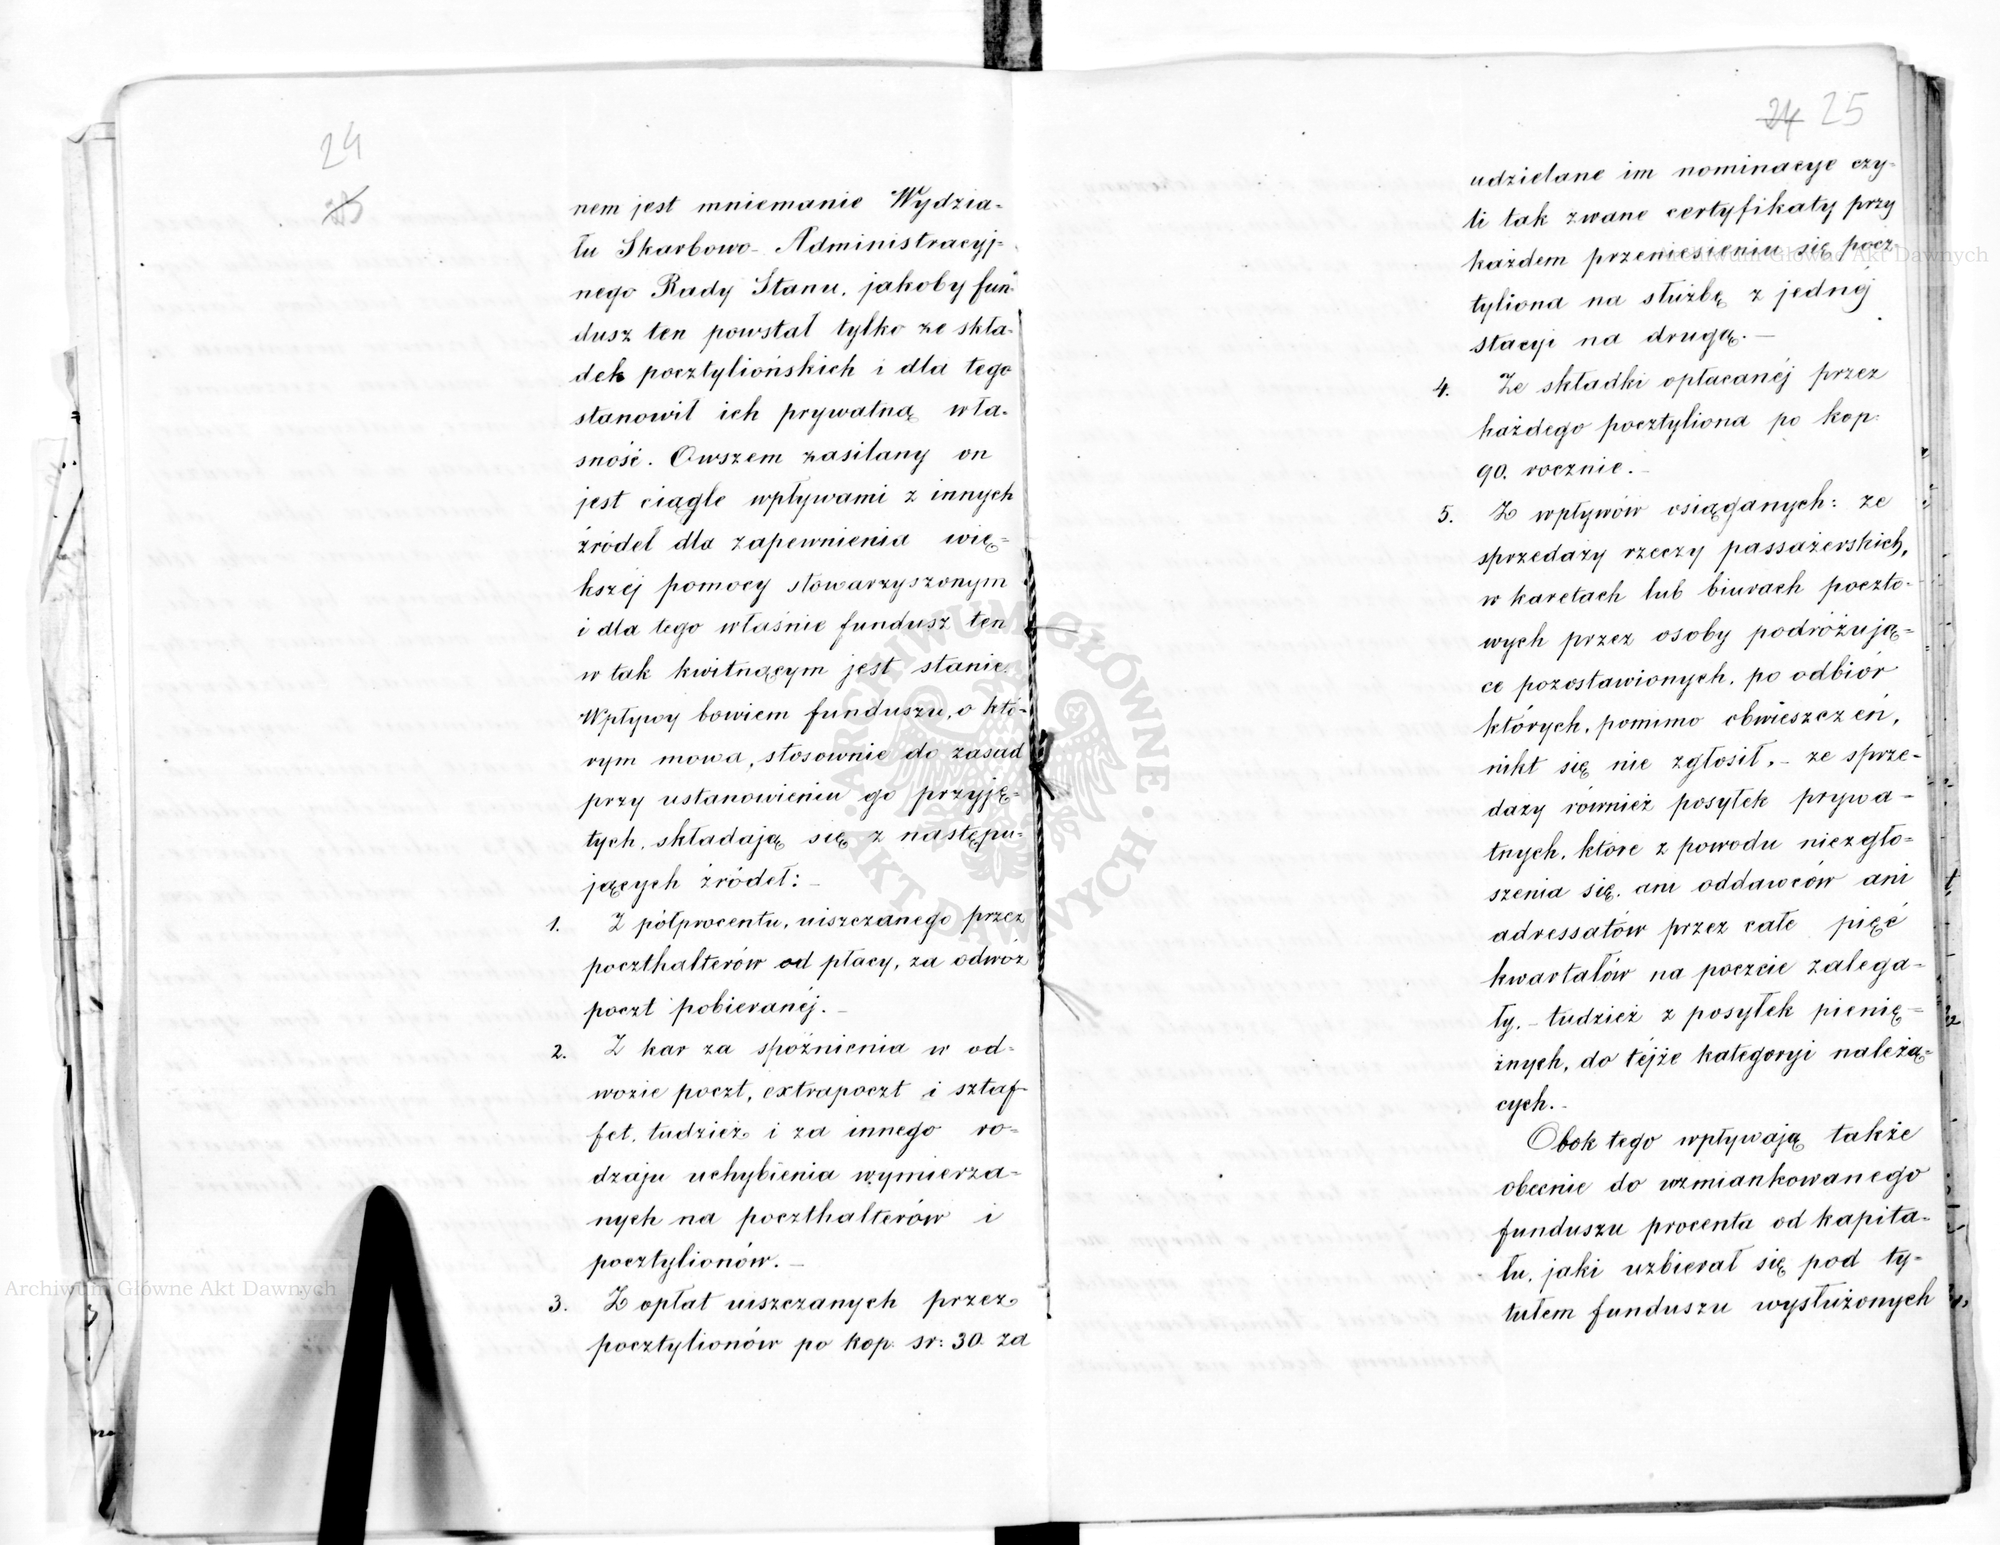 24
23
nem jest mniemanie Wydzia-
łu Skarbowo-Administracyj-
nego Rady Stanu, jakoby fun-
dusz ten powstał tylko ze skła-
dek pocztyliońskich i dla tego
stanowił ich prywatną wła-
sność. Owszem zasilany on
jest ciągle wpływami z innych
źródeł dla zapewnienia wię-
kszéj pomocy stowarzyszonym
i dla tego właśnie fundusz ten
w tak kwitnącym jest stanie.
Wpływy bowiem funduszu, o któ-
rym mowa, stosownie do zasad
przy ustanowieniu go przyję-
tych, składają się z następu-
jących źródeł: –
1. Z półprocentu, uiszczanego przez
poczthalterów od płacy, za odwóz
poczt pobieranéj. –
2. Z kar za spóźnienia w od-
wozie poczt, extrapoczt i sztaf-
fet, tudzież i za innego ro-
dzaju uchybienia wymierza-
nych na poczthalterów i
pocztylionów. –
3. Z opłat uiszczanych przez
pocztylionów po kop. sr: 30. za
24 25
udzielane im nominacye czy-
li tak zwane certyfikaty przy
każdem przeniesieniu się pocz-
tyliona na służbę z jednéj
stacyi na drugą. –
4. Ze składki opłacanéj przez
każdego pocztyliona po kop.
90. rocznie. –
5. Z wpływów osiąganych: ze
sprzedaży rzeczy passażerskich,
w karetach lub biurach poczto-
wych przez osoby podróżują-
ce pozostawionych, po odbiór
których, pomimo obwieszczeń,
nikt się nie zgłosił, – ze sprze-
daży również posyłek prywa-
tnych, które z powodu niezgło-
szenia się, ani oddawców ani
adressatów przez całe pięć
kwartałów na poczcie zalega-
ły, – tudzież z posyłek pienię-
żnych, do téjże kategoryi należą-
cych. –
Obok tego wpływają także
obecnie do wzmiankowanego
funduszu procenta od kapita-
łu, jaki uzbierał się pod ty-
tułem funduszu wysłużonych
Archiwum Główne Akt Dawnych
Archiwum Główne Akt Dawnych
ARCHIWUM GŁÓWNE · AKT DAWNYCH ·